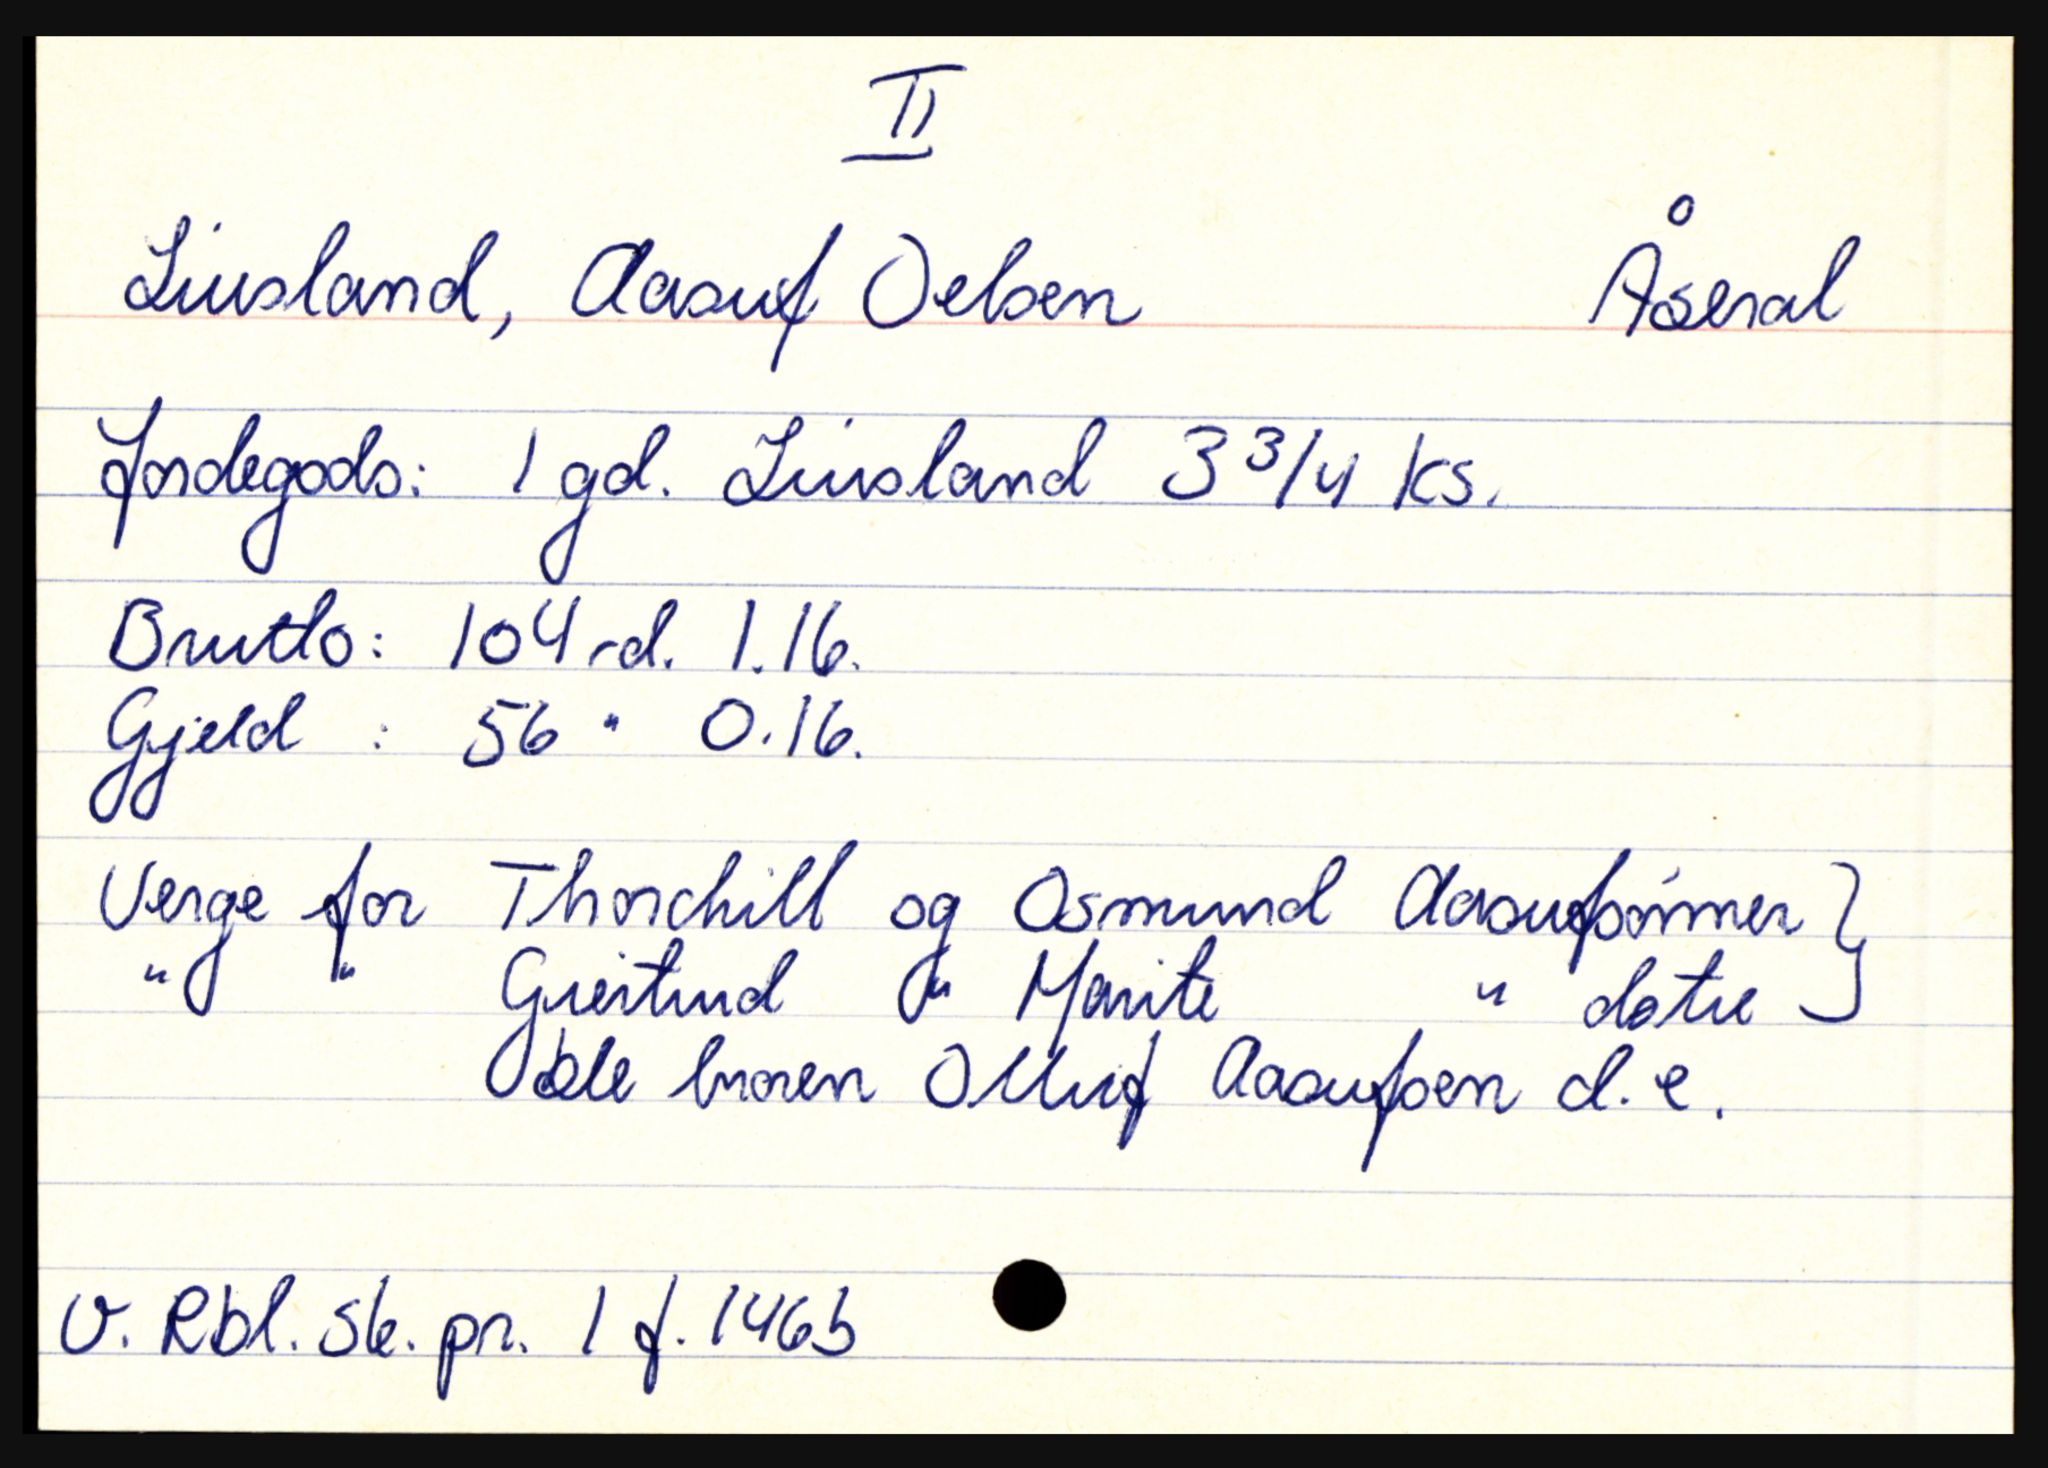 II
Liusland, Aasuf Oelsen Åseral
Jordegods: 1 gd. Liusland 3 3/4 ks.
Brutto: 104 rd. 1.16.
Gjeld : 56 " 0.16.
Verge for Thorchill og Osmund Aasufsønner }
" " Giertrud " Marite " døtre }
ble broren Olluf Aasufsen d.e.
V. Rbl. Sk. pr. 1 f. 146b